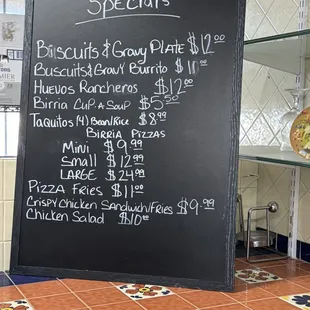 Specials
Biscuits & Gravy Plate $12.00
Buscuits & Gravy Burrito $10.00
Huevos Rancheros $12.00
Birria Cup-A-Soup $5.50
Taquitos (4) Bean/Rice $8.99
Birria Pizzas
Mini $9.99
Small $12.99
Large $24.99
Pizza Fries $11.00
Crispy Chicken Sandwich/Fries $9.99
Chicken Salad $10.00